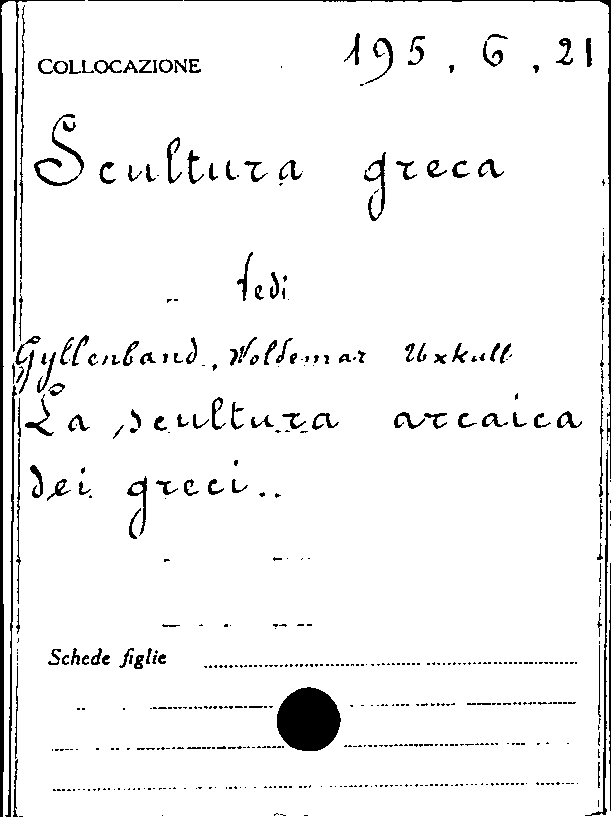 COLLOCAZIONE 195.6.21
Scultura greca
Vedi
Gyllenband, Woldemar Uxkull
La scultura arcaica
dei greci..
Schede figlie